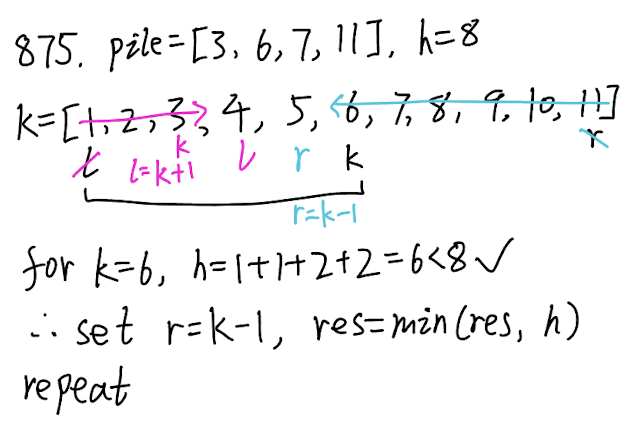 875. pile=[3, 6, 7, 11], h=8
k=[1, 2, 3, 4, 5, 6, 7, 8, 9, 10, 11]
l l=k+1 k l r k r
r=k-1
for k=6, h=1+1+2+2=6<8✓
∴ set r=k-1, res=min(res, h)
repeat